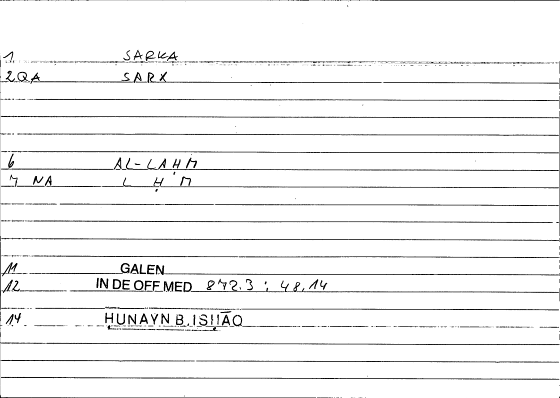 1 SARKA
2 QA SARX
6 AL-LAḤM
7 NA L Ḥ M
11 GALEN
12 IN DE OFF.MED 872.3 ; 48.14
14 ḤUNAYN B. ISḤĀQ